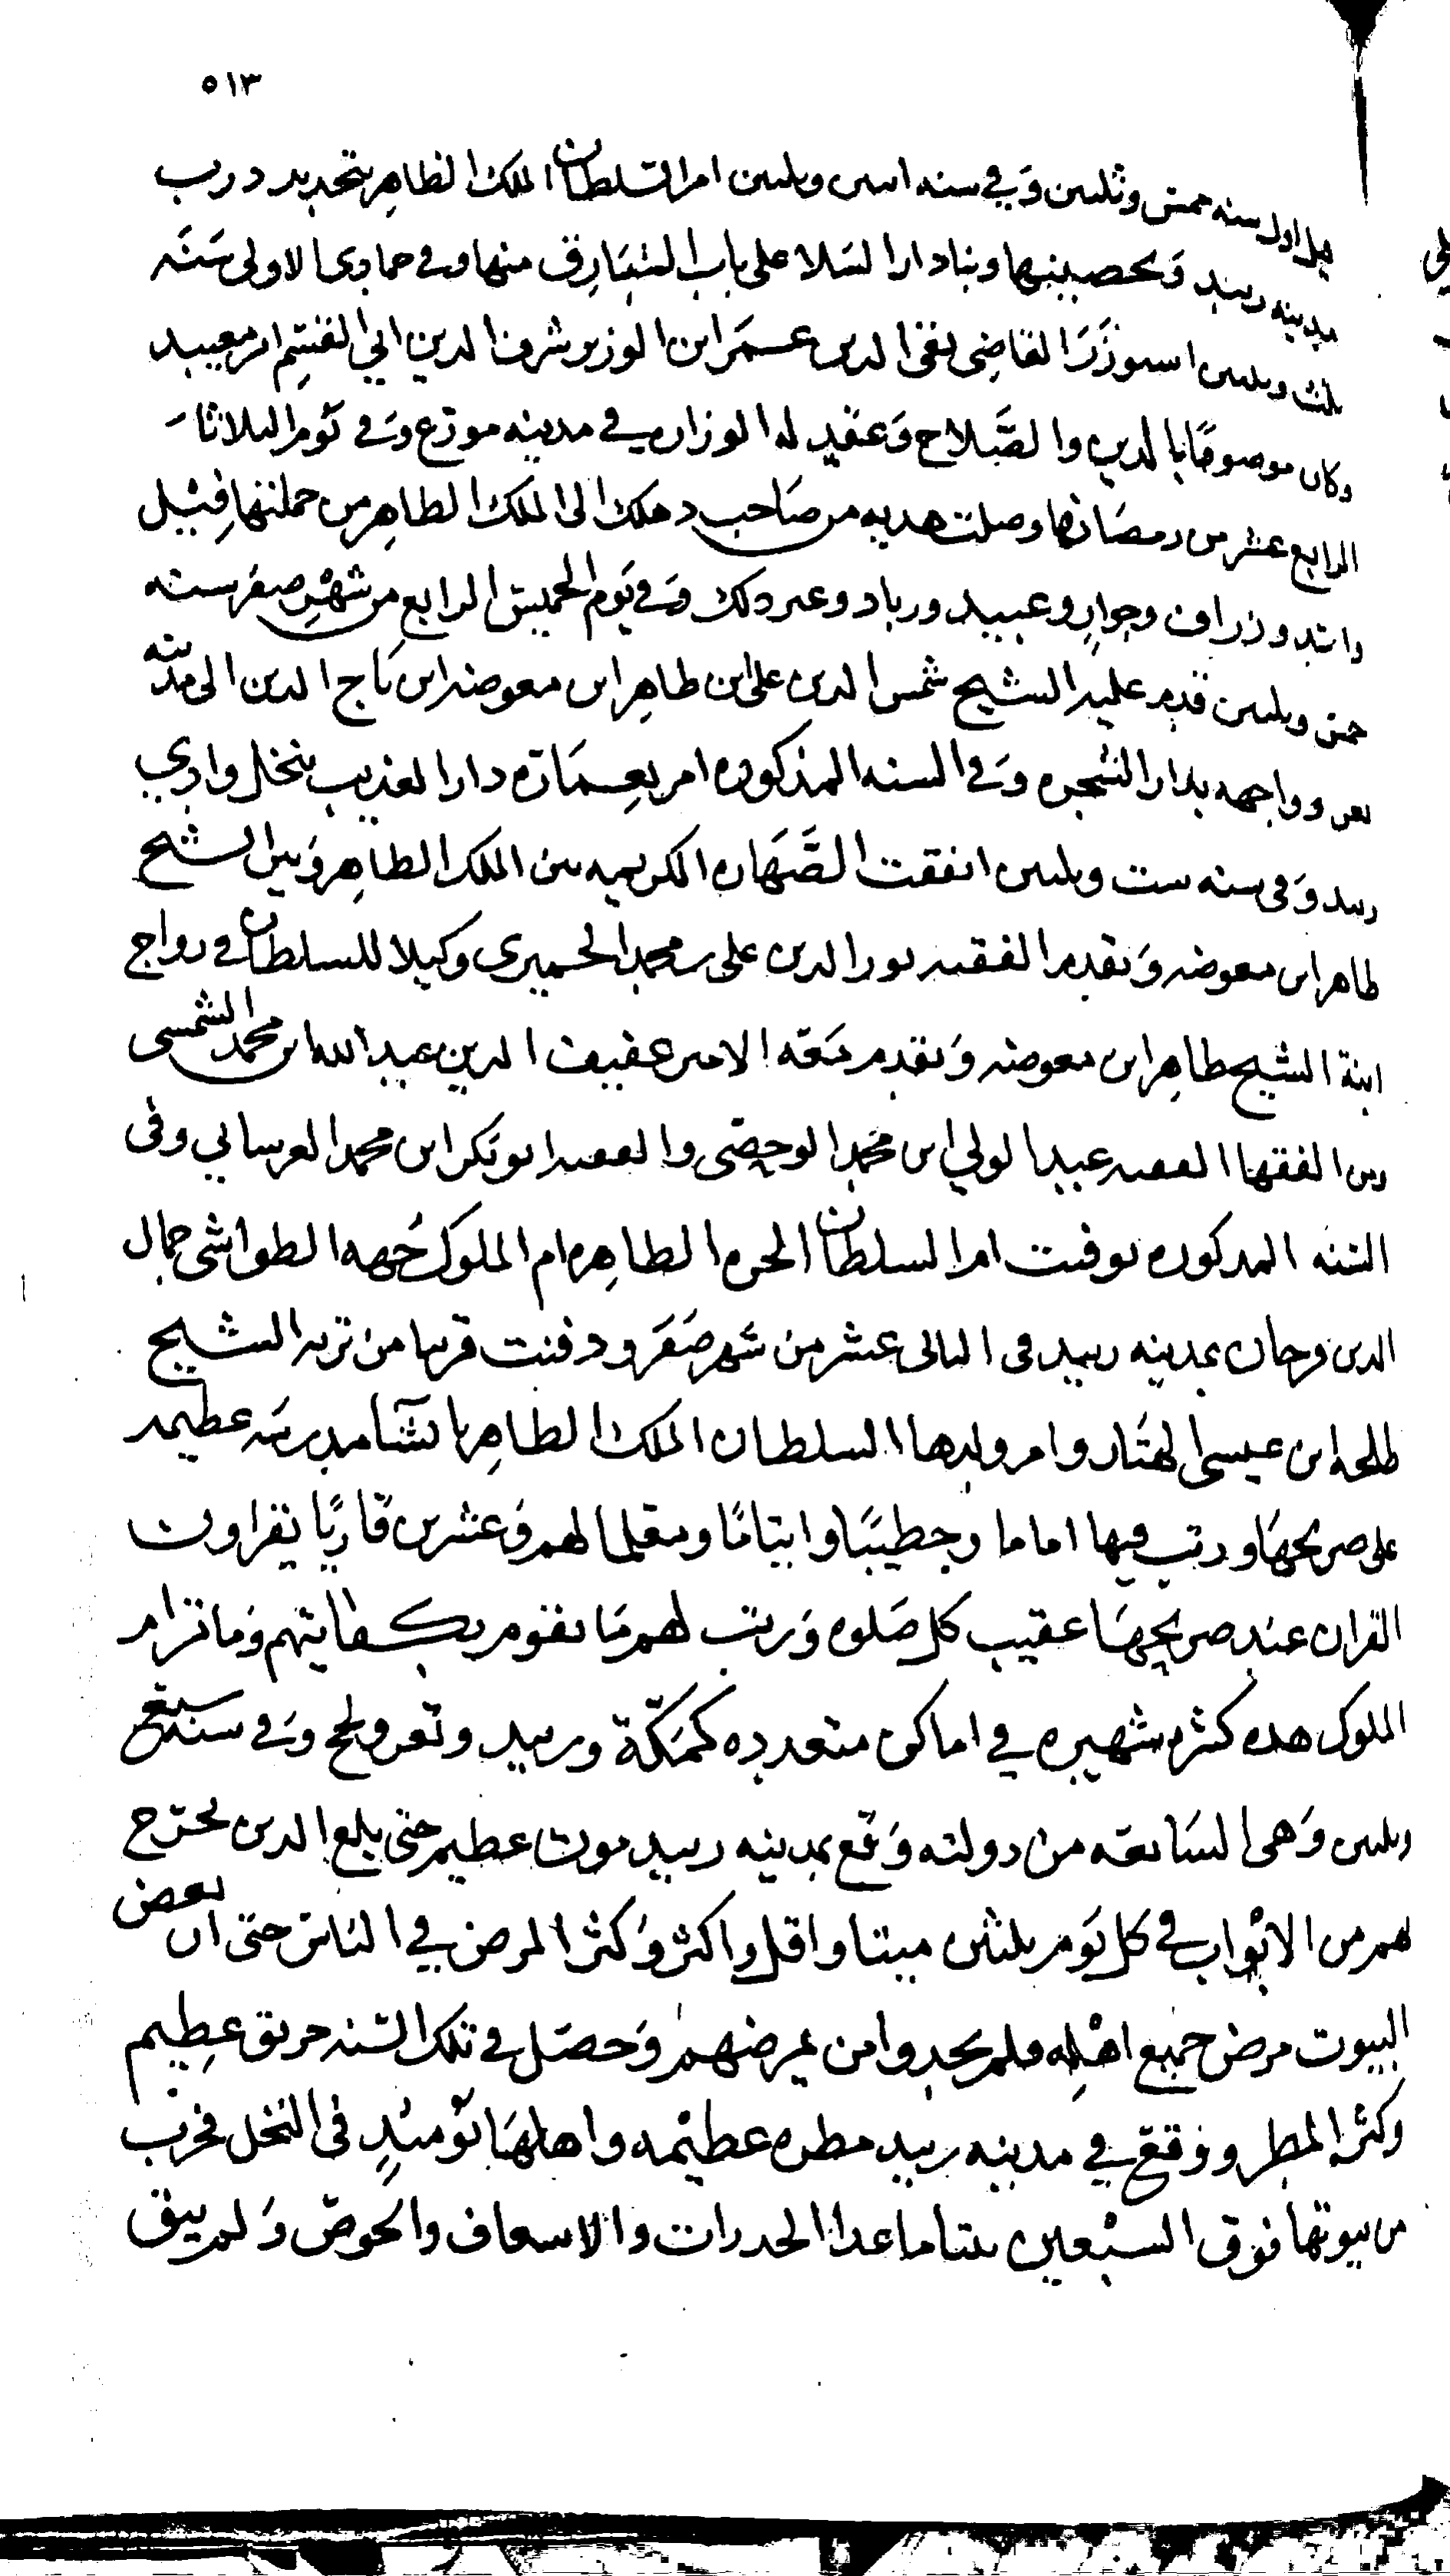 ٥١٣
قبل اول سنه خمس وثلثين وَفي سنه اثنين وثلثين امر السلطان الملك الظاهر بتجديد درب
مدينه زبيد وَتحصينها وبنا دار السَلا على باب الشبارق منها وفي جمادى الاولى سَنَه
ثلث وثلثين استوزَرَ القاضِى تقي الدين عمَر ابن الوزير شرف الدين ابي القسم ابن معيبد
وكان موصوفًا بالدين والصَّلاح وَعقد له الوزاره في مدينه موزع وَفي يَوم الثلاثاء
الرابع عشر من رمضان وصلت هديه من صَاحب دهلك الى الملك الظاهر من جملتها فيل
واسد وزراف وجوارٍ وعبيد وزباد وغير ذلك وَفي يَوم الخميس الرابع من شهْرِ صفر سنه
خمس وثلثين قدم عليه الشيخ شمس الدين على ابن طاهر ابن معوضه ابن تاج الدين الى مدينه
تعز وواجهه بدار الشجره وَفى السنه المذكوره امر بعِمَارَة دار العذيب بنخل وادي
زبيد وَفى سنه ست وثلثين اتفقت الصَّهَاره الكريمه بين الملك الظاهر وَبين الشيخ
طاهر ابن معوضه وَتقدم الفقيه نور الدين على بن محمد الحميرى وكيلا للسلطان في زواج
ابنة الشيخ طاهر ابن معوضه وَتقدم مَعَه الامير عفيف الدين عبد الله ابن محمد الشمسى
ومن الفقها الفقيه عبد الولي ابن محمد الوحصى والفقيه ابو بكر ابن محمد العرسانى وفى
السنه المذكوره توفيت ام السلطان الحره الطاهره ام الملوك جُهه الطواشى جمال
الدين فرحان بمدينه زبيد فى الثانى عشر من شهر صَفَر ودفنت قريبا من تربه الشيخ
طلحه ابن عيسى الهتَار وامر ولدها السلطان الملك الظاهر بانشآ مدرسَه عظيمه
على ضريحهَا ورتب فيها اماما وخطيبًا وايتامًا ومعلما لهم وَعشرين قاريًا يقراون
القران عند ضريحهَا عقيب كل صَلوه وَرتب لهم مَا يقوم بكفايتهم وَماثر ام
الملوك هذه كثره شهيره في اماكن متعدده كمَكّة وزبيد وتعز ولحج وَفي سنه سبع
وثلثين وَهى السَابعه من دولته وَقع بمدينه زبيد موت عظيم حتى بلغ الذين تخرج
لهم من الابْواب في كل يَوم ثلثين ميتا واقل واكثر وَكثر المرض في النَاس حتى ان بعض
البيوت مرض جميع اهْلِه ولم يجدوا من يمرضهم وَحصَل في تلك السنه حريق عظِيم
وكثر المطر ووَقع في مدينه زبيد مطره عظيمه واهلهَا يَوميئذٍ فى النخل فخرب
من بيوتها فوق السبْعين بيتا ما عدا الجدرات والاسعاف والخوص وَلم يبق